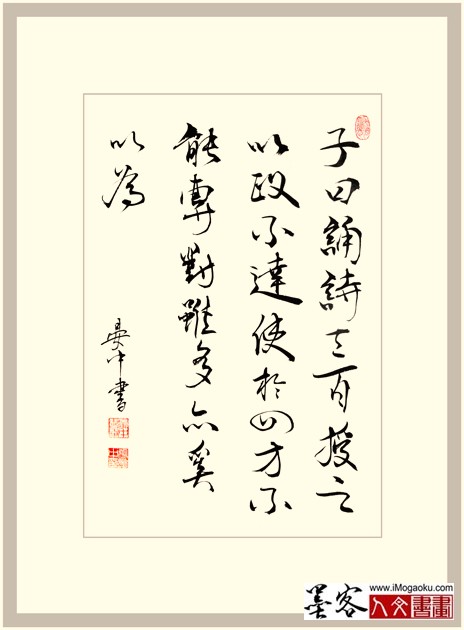 子曰誦詩三百授之
以政不達使於四方不
能專對雖多亦奚
以為
晏中書
www.iMogaoku.com
墨客
人文書畫